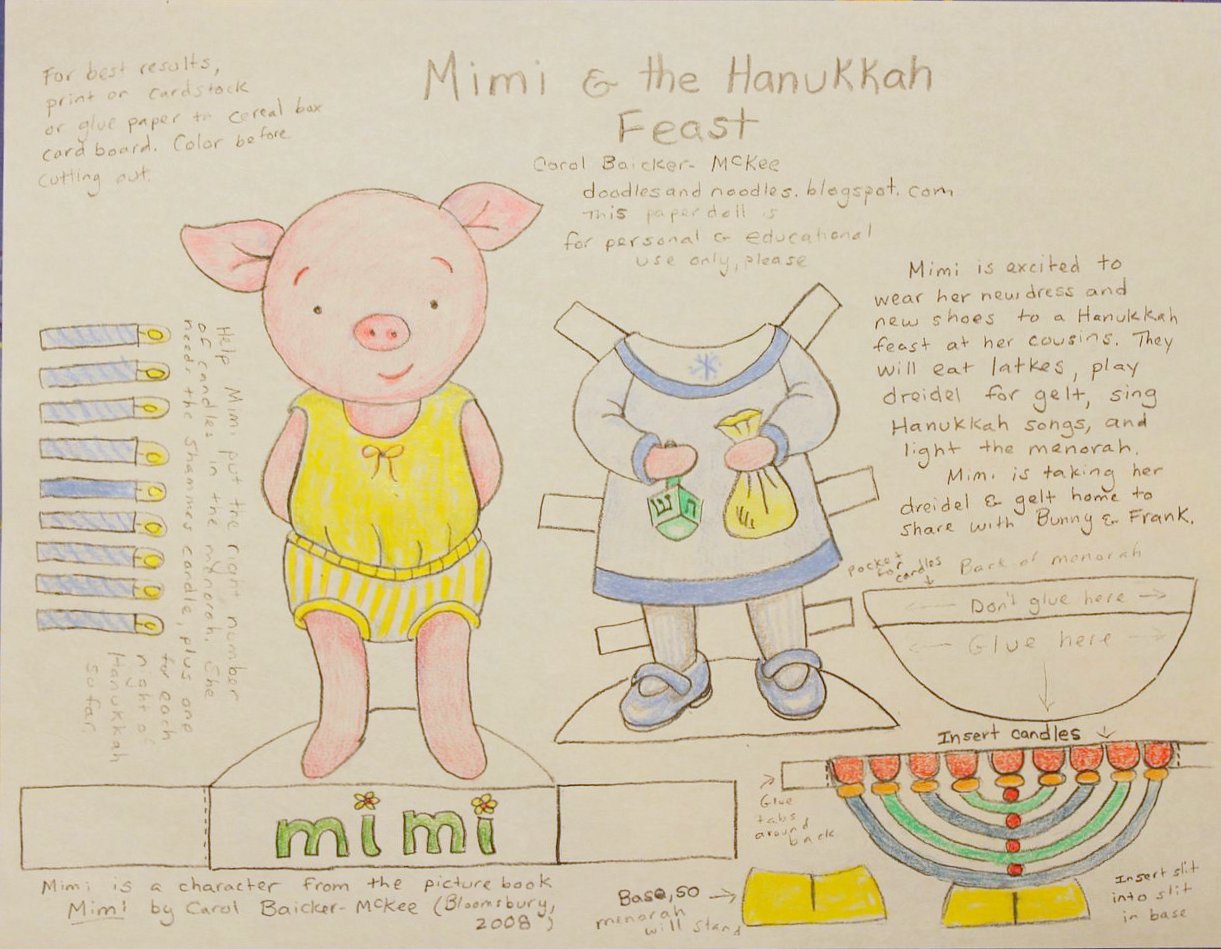 For best results,
print on cardstock
or glue paper to cereal box
cardboard. Color before
cutting out.
Mimi & the Hanukkah
Feast
Carol Baicker-McKee
doodlesandnoodles.blogspot.com
This paper doll is
for personal & educational
use only, please
Mimi is excited to
wear her new dress and
new shoes to a Hanukkah
feast at her cousins. They
will eat latkes, play
dreidel for gelt, sing
Hanukkah songs, and
light the menorah.
Mimi is taking her
dreidel & gelt home to
share with Bunny & Frank.
Help Mimi put the right number
of candles in the menorah. She
needs the Shammes candle, plus one
for each
night of
Hanukkah
so far.
ש ת
pocket
for candles
Back of menorah
Don't glue here
Glue here
Insert candles
Glue
tabs
around
back
mimi
Mimi is a character from the picture book
Mimi by Carol Baicker-McKee (Bloomsbury,
2008)
Base, so
menorah
will stand
Insert slit
into slit
in base